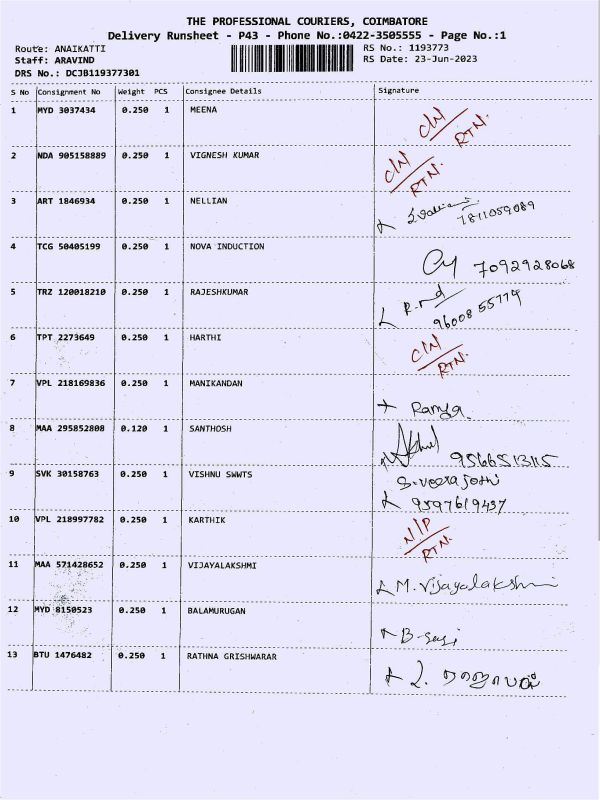 THE PROFESSIONAL COURIERS, COIMBATORE
Delivery Runsheet - P43 - Phone No.:0422-3505555 - Page No.:1
Route: ANAIKATTI RS No.: 1193773
Staff: ARAVIND RS Date: 23-Jun-2023
DRS No.: DCJB119377301
S No Consignment No Weight PCS Consignee Details Signature
1 MYD 3037434 0.250 1 MEENA C/N RTN.
2 NDA 905158889 0.250 1 VIGNESH KUMAR C/N RTN.
3 ART 1846934 0.250 1 NELLIAN 7811059089
4 TCG 50405199 0.250 1 NOVA INDUCTION 7092928068
5 TRZ 120018210 0.250 1 RAJESHKUMAR 9600855779
6 TPT 2273649 0.250 1 HARTHI C/N RTN.
7 VPL 218169836 0.250 1 MANIKANDAN Ramya.
8 MAA 295852808 0.120 1 SANTHOSH 9566513115
9 SVK 30158763 0.250 1 VISHNU SWWTS S.veerajothi
9597619437
10 VPL 218997782 0.250 1 KARTHIK N/P RTN.
11 MAA 571428652 0.250 1 VIJAYALAKSHMI M.Vijayalakshmi
12 MYD 8150523 0.250 1 BALAMURUGAN
13 BTU 1476482 0.250 1 RATHNA GRISHWARAR